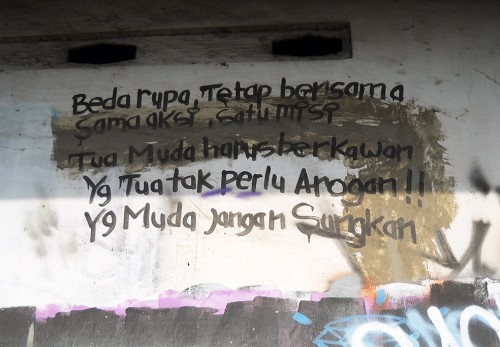 Beda rupa, Tetap bersama
Sama aksi, satu misi
Tua Muda harus berkawan
Yg Tua tak perlu Arogan!!
Yg Muda jangan Sungkan